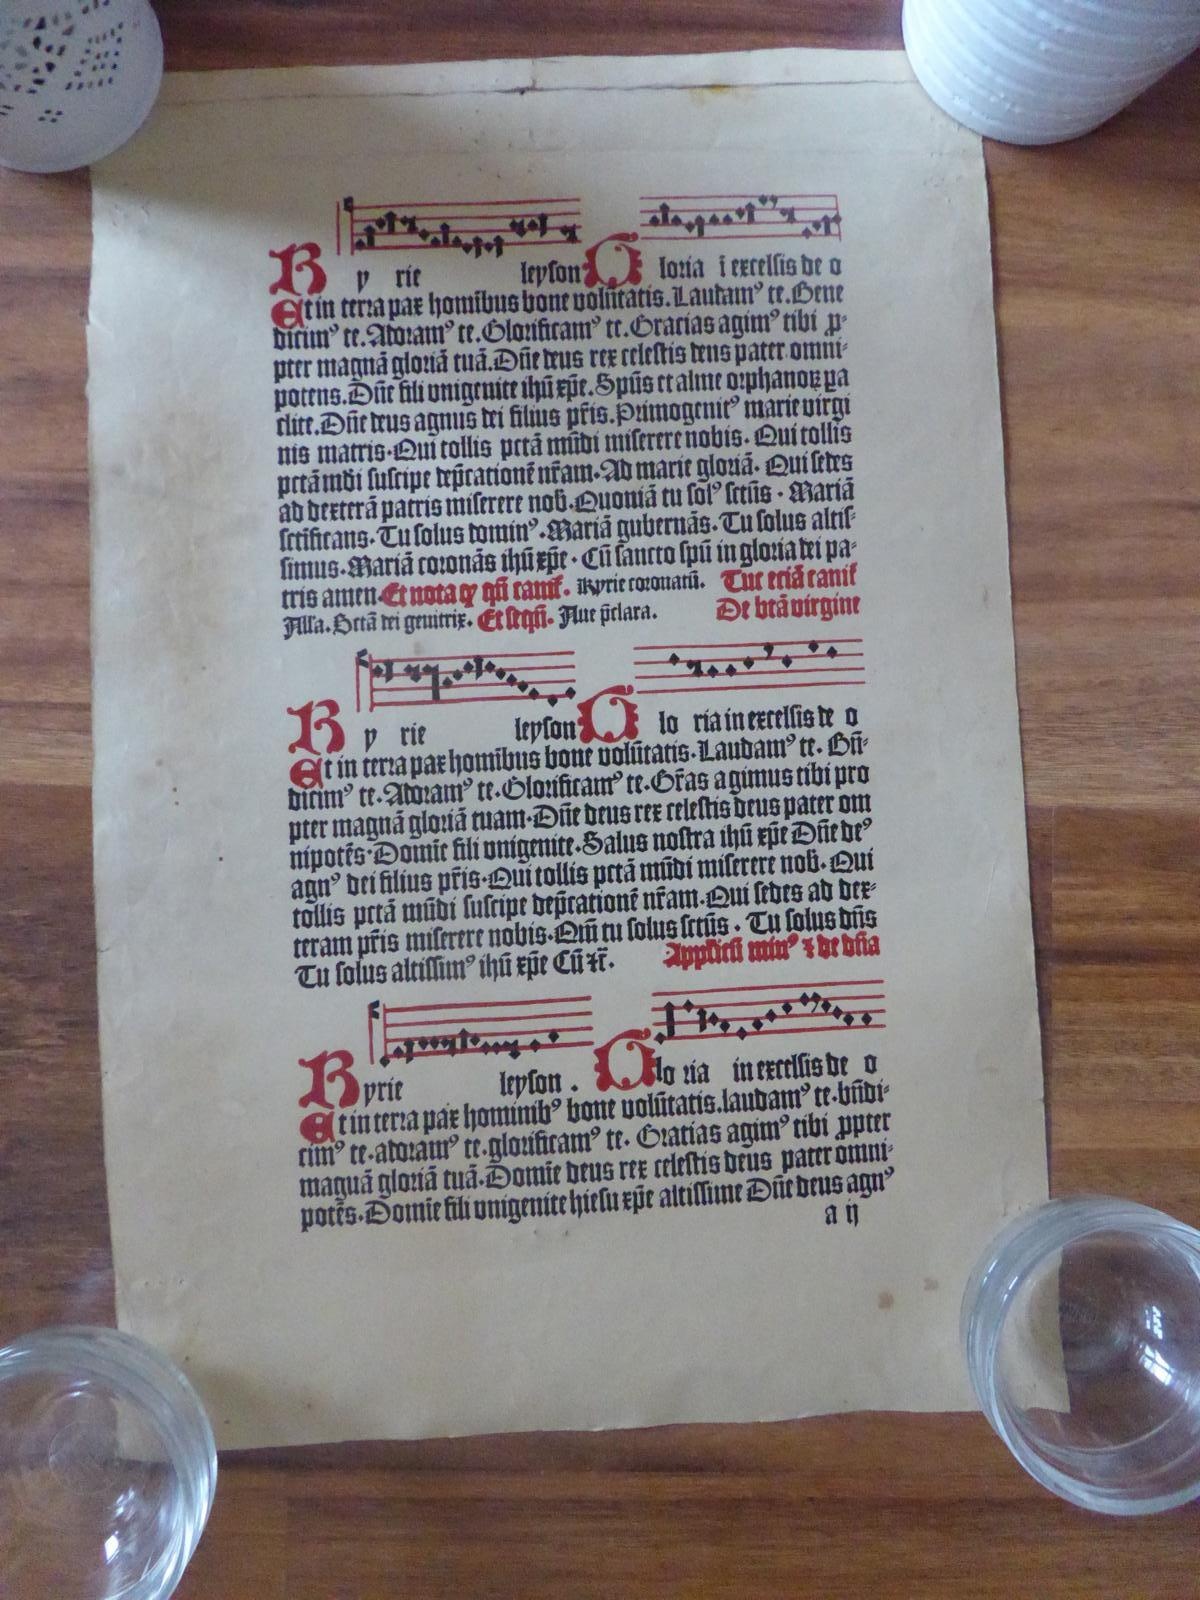 Ky rie leyson Gloria ī excelsis de o
Et in terra pax homībus bone volūtatis. Laudamꝰ te. Bene
dicimꝰ te. Adoramꝰ te. Glorificamꝰ te. Gracias agimꝰ tibi ꝓ-
pter magnā gloriā tuā. Dn̄e deus rex celestis deus pater omni-
potens. Dn̄e fili vnigenite ihū xp̄e. Spūs et alme orphanoꝝ ꝑa
clite. Dn̄e deus agnus dei filius pr̄is. Primogenitꝰ marie virgi
nis matris. Qui tollis pctā mūdi miserere nobis. Qui tollis
pctā mūdi suscipe dep̄cationē nr̄am. Ad marie gloriā. Qui sedes
ad dexterā patris miserere nob̄. Quoniā tu solꝰ sctūs. Mariā
sctificans. Tu solus dominꝰ. Mariā gubernās. Tu solus altis-
simus. Mariā coronās ihū xp̄e. Cū sancto spū in gloria dei pa-
tris amen. Et nota ꝙ qn̄ canit̄. Kyrie coronatū. Tuc eciā canit̄
Alla. Sctā dei genitrix. Et seqn̄. Aue p̄clara. De btā virgine
Ky rie leyson Glo ria in excelsis de o
Et in terra pax homībus bone volūtatis. Laudamꝰ te. Bn̄-
dicimꝰ te. Adoramꝰ te. Glorificamꝰ te. Gr̄as agimus tibi pro
pter magnā gloriā tuam. Dn̄e deus rex celestis deus pater om
nipotēs. Domīe fili vnigenite. Salus nostra ihū xp̄e Dn̄e deꝰ
agnꝰ dei filius pr̄is. Qui tollis pctā mūdi miserere nob̄. Qui
tollis pctā mūdi suscipe dep̄cationē nr̄am. Qui sedes ad dex-
teram pr̄is miserere nobis. Qm̄ tu solus sctūs. Tu solus dn̄s
Tu solus altissimꝰ ihū xp̄e Cū ꝛc̄. minꝰ ꝛ de dn̄ia
Kyrie leyson. Glo ria in excelsis de o
Et in terra pax hominibꝰ bone volūtatis. laudamꝰ te. bn̄di-
cimꝰ te. adoramꝰ te. glorificamꝰ te. Gratias agimꝰ tibi ꝓpter
magnā gloriā tuā. Domīe deus rex celestis deus pater omni-
potēs. Domīe fili vnigenite hiesu xp̄e altissime Dn̄e deus agnꝰ
a ij